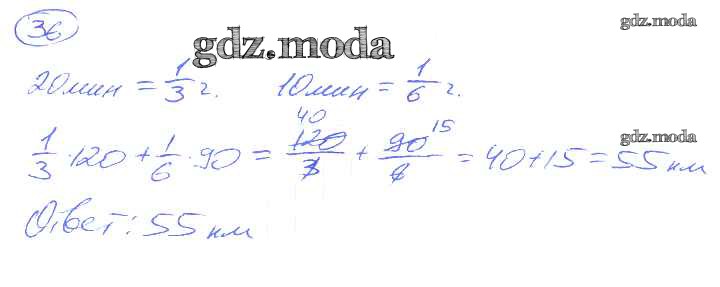 36
gdz.moda
gdz.moda
20мин = 1/3 г. 10мин = 1/6 г.
1/3 · 120 + 1/6 · 90 = 120/3 40 + 90/6 15 = 40 + 15 = 55 км
gdz.moda
Ответ: 55 км